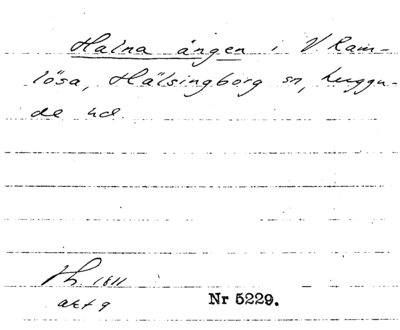 Halna ängen i V Ram-
lösa, Hälsingborg sn, Luggu-
de hd.
Th. 1811
akt 9
Nr 5229.